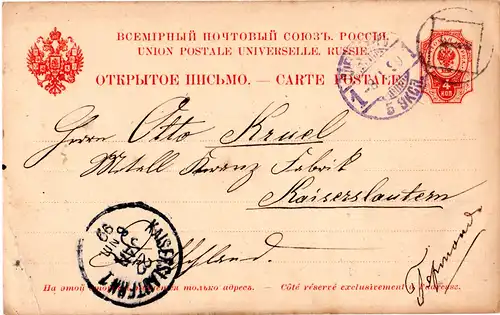 ВСЕМІРНЫЙ ПОЧТОВЫЙ СОЮЗЪ. РОССІЯ.
UNION POSTALE UNIVERSELLE. RUSSIE.
ОТКРЫТОЕ ПИСЬМО. — CARTE POSTALE.
4
КОП
1
Herrn Otto Kruel
Metall Kranz Fabrik
Kaiserslautern
KAISERSLAUTERN 1
99
На этой сторонѣ только адресъ. — Côté réservé exclusivement à l'adresse.